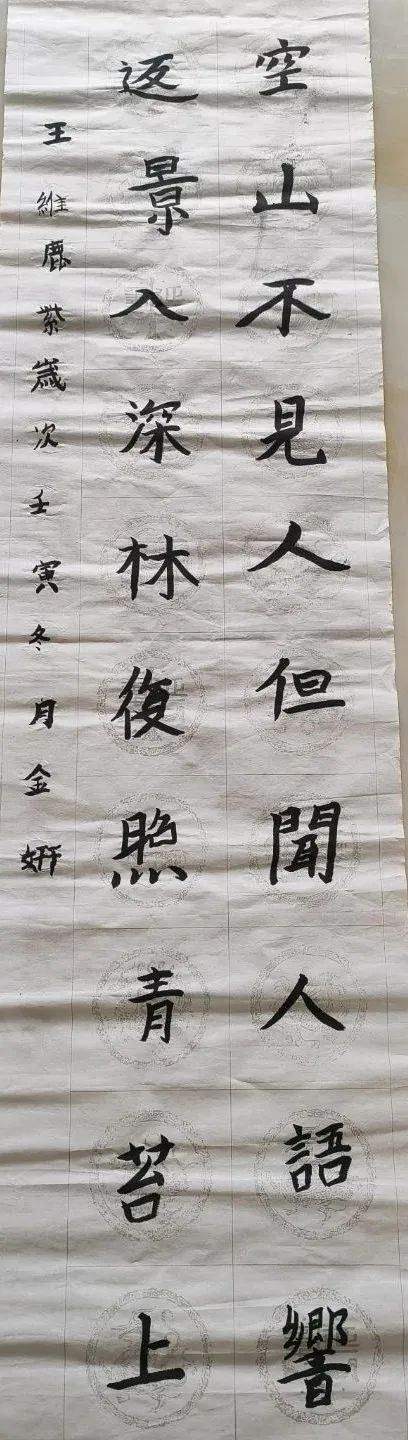 空山不見人但聞人語響
返景入深林復照青苔上
王維鹿柴歲次壬寅冬月金妍